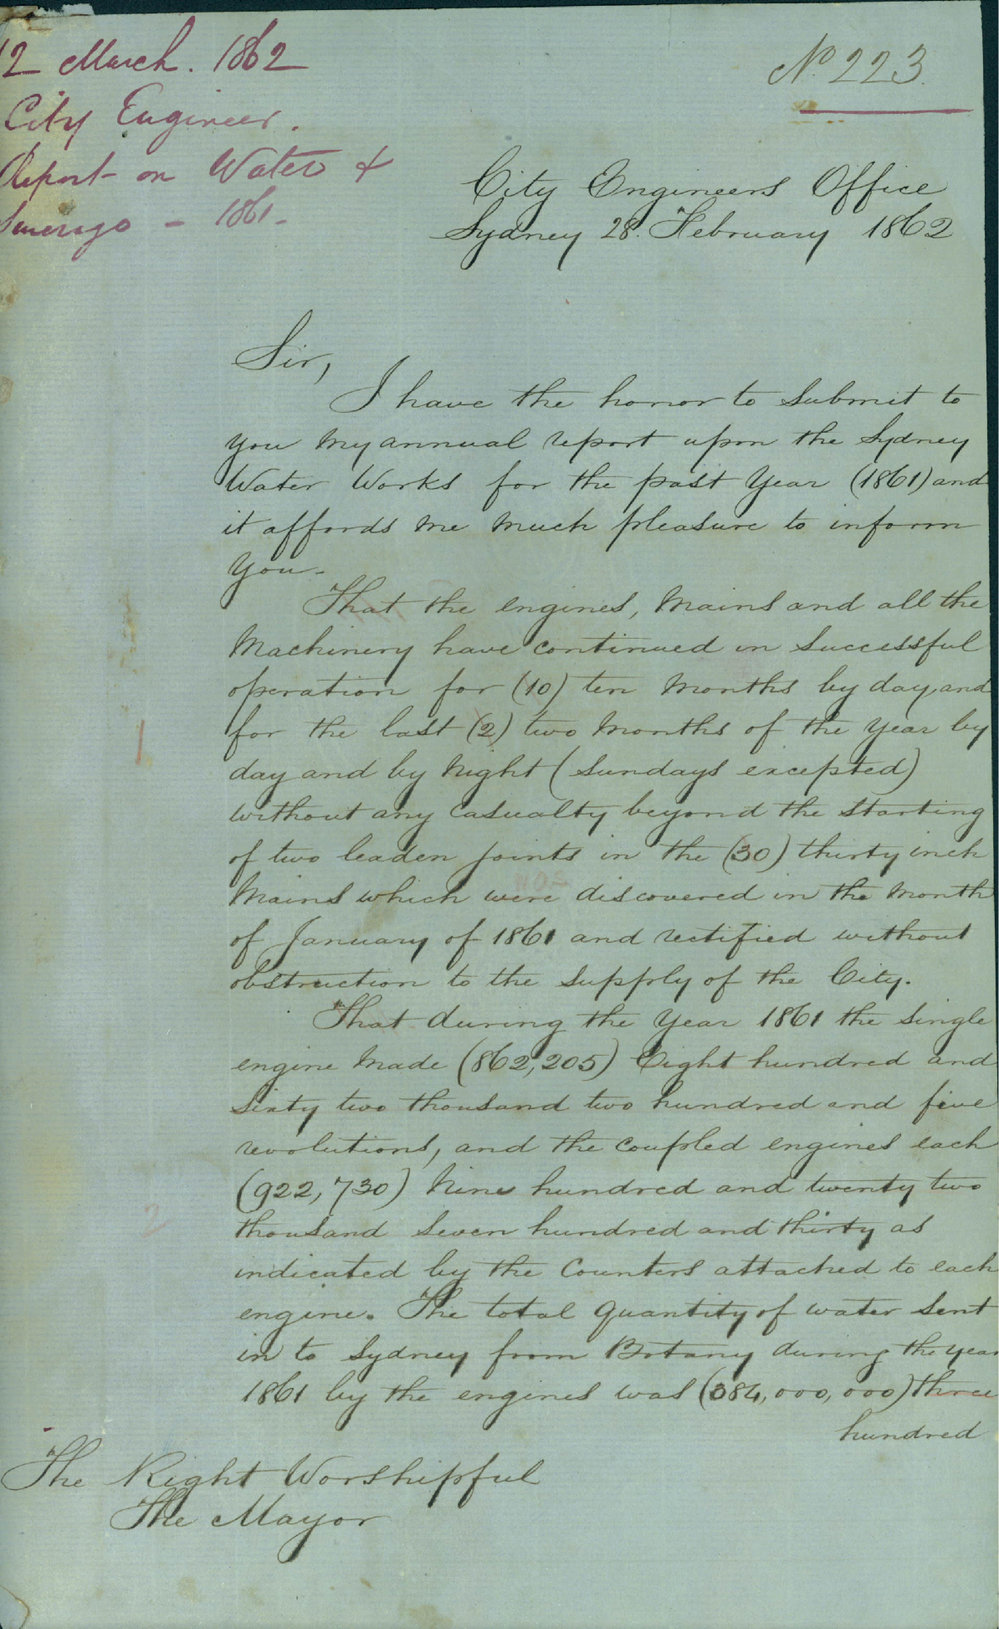 12 March. 1862
City Engineer.
Report on Water &
Sewerage - 1861 -
No. 223
City Engineers Office
Sydney 28. February 1862
Sir,
I have the honor to submit to
you my annual report upon the Sydney
Water Works for the past Year (1861) and
it affords me much pleasure to inform
you -
That the engines, Mains and all the
Machinery have continued in successful
operation for (10) ten Months by day, and
for the last (2) two Months of the Year by
day and by Night (Sundays excepted)
without any casualty beyond the starting
of two leaden joints in the (30) thirty inch
Mains which were discovered in the Month
of January of 1861 and rectified without
obstruction to the supply of the City.
That during the Year 1861 the single
engine made (862,205) Eight hundred and
sixty two thousand two hundred and five
revolutions, and the coupled engines each
(922,730) Nine hundred and twenty two
thousand seven hundred and thirty as
indicated by the Counters attached to each
engine. The total quantity of water sent
in to Sydney from Botany during the year
1861 by the engines was (384,000,000) three
hundred
The Right Worshipful
The Mayor
1
2